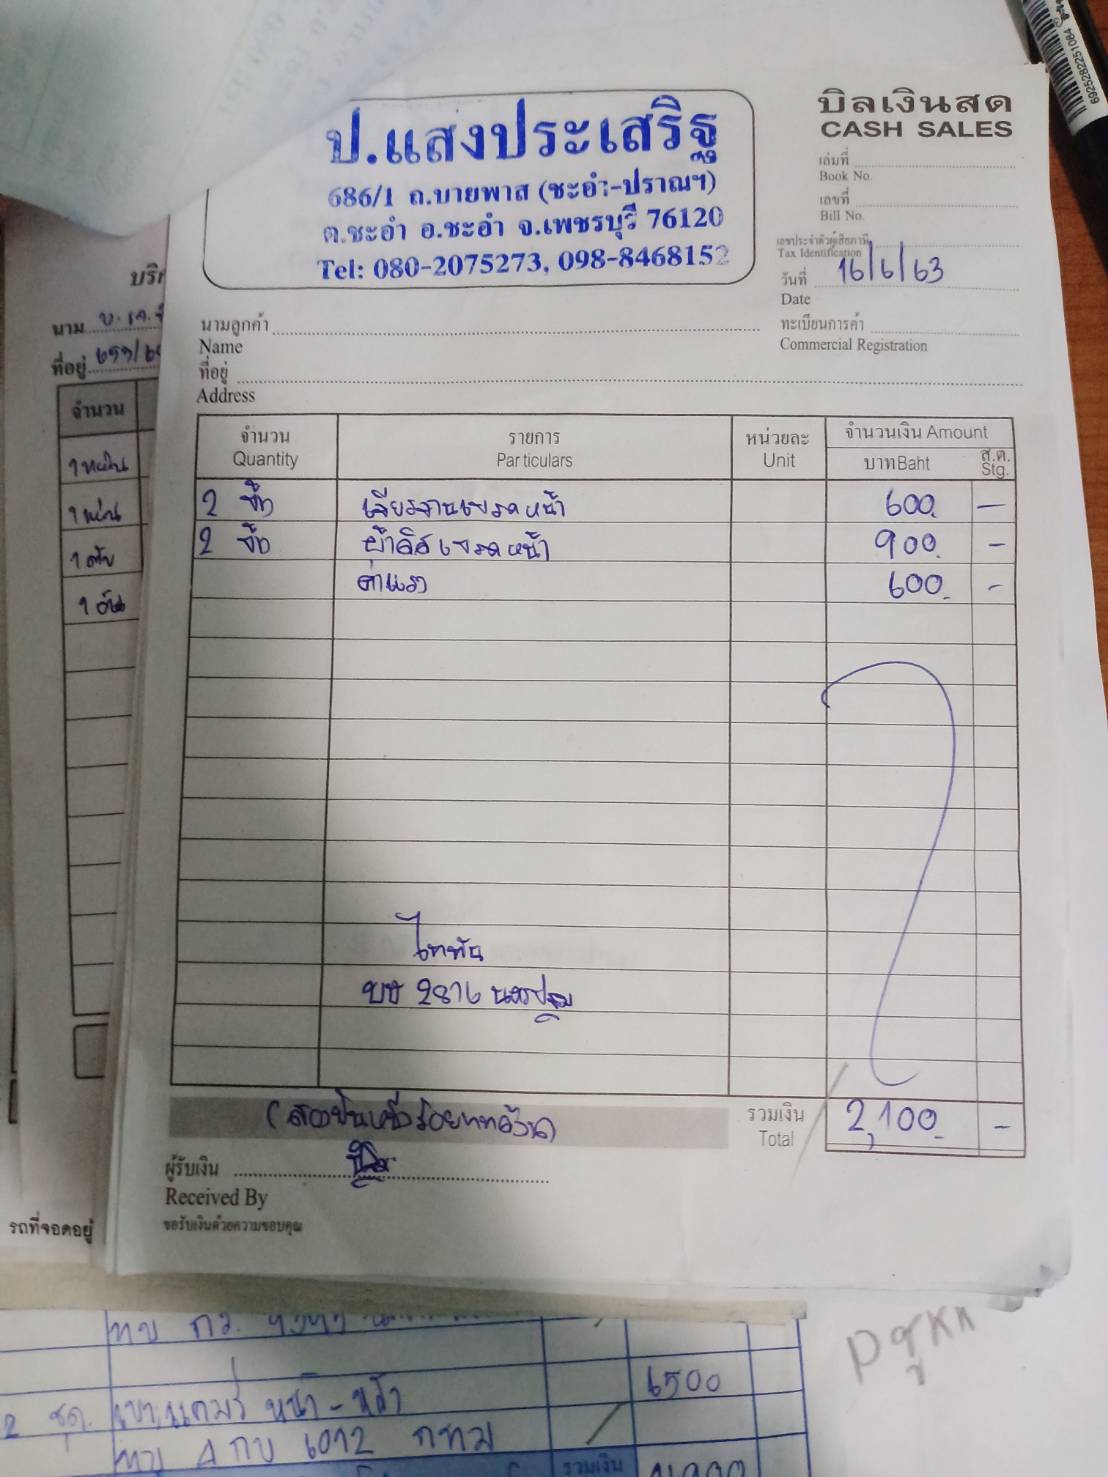 บิลเงินสด
CASH SALES
ป.แสงประเสริฐ
686/1 ถ.บายพาส (ชะอำ-ปราณฯ)
ต.ชะอำ อ.ชะอำ จ.เพชรบุรี 76120
Tel: 080-2075273, 098-8468152
เล่มที่
Book No.
เลขที่
Bill No.
เลขประจำตัวผู้เสียภาษี
Tax Identification
วันที่ 16/6/63
Date
ทะเบียนการค้า
Commercial Registration
นามลูกค้า
Name
ที่อยู่
Address
จำนวน รายการ หน่วยละ จำนวนเงิน Amount
Quantity Particulars Unit บาท Baht ส.ต. Stg.
2 ชิ้น เจียรจานเบรคหน้า 600. -
2 ชิ้น ผ้าดิสเบรคหน้า 900. -
ค่าแรง 600. -
ไททัน
บษ 2816 นครปฐม
(สองพันหนึ่งร้อยบาทถ้วน) รวมเงิน 2,100. -
Total
ผู้รับเงิน
Received By
ขอรับเงินด้วยความขอบคุณ
นาม
ที่อยู่
จำนวน
1 แผ่น
1 ตัว
1 อัน
รถที่จอดอยู่
6500
2 ชุด. หน้า - หลัง
6012 กทม
รวมเงิน
6925282251084